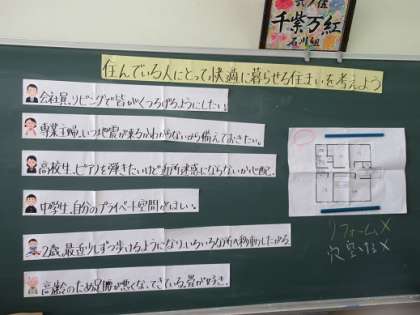 千紫万紅
石川組
住んでいる人にとって快適に暮らせる住まいを考えよう
会社員、リビングで皆がくつろげるようにしたい。
専業主婦、いつ地震が来るかわからないから備えておきたい。
高校生、ピアノを弾きたいけど近所迷惑にならないか心配。
中学生、自分のプライベート空間がほしい。
2歳、最近少しずつ歩けるようになり、いろいろな所へ移動したがる。
高齢のため足腰が悪くなってきている。畳が好き。
リフォーム×
穴空ける×